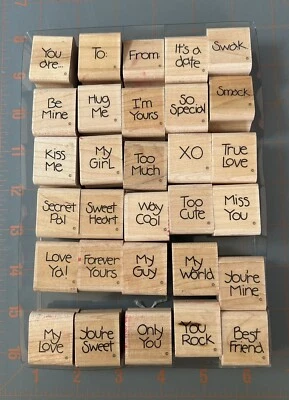 You are...
To:
From:
It's a date
Swak
Be Mine
Hug Me
I'm Yours
So Special
Smack
Kiss Me
My Girl
Too Much
XO
True Love
Secret Pal
Sweet Heart
Way Cool
Too Cute
Miss You
Love Ya!
Forever Yours
My Guy
My World
You're Mine
My Love
You're Sweet
Only You
You Rock
Best Friend
1 2 3 4 5 6